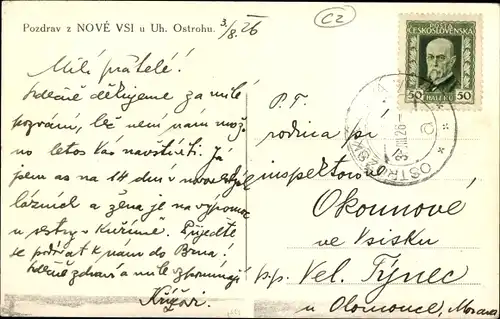 Pozdrav z NOVÉ VSI u Uh. Ostrohu.
3/8. 26
CZ
POŠTA
ČESKOSLOVENSKÁ
50 50
HALÉŘŮ
Milí přátelé!
Srdečně děkujeme za milé
pozvání, leč není nám mož-
no letos Vás navštíviti. Já
jsem as na 14 dní v
lázních a žena je na výpomoc
u sestry v Přijeďte
se podívat k nám do Brna!
Srdečně zdraví a mile vzpomínají
P. T.
rodina pí
inspektorové
Okounové
ve Vsisku
p.p. Vel. Týnec
u Olomouce, Morava